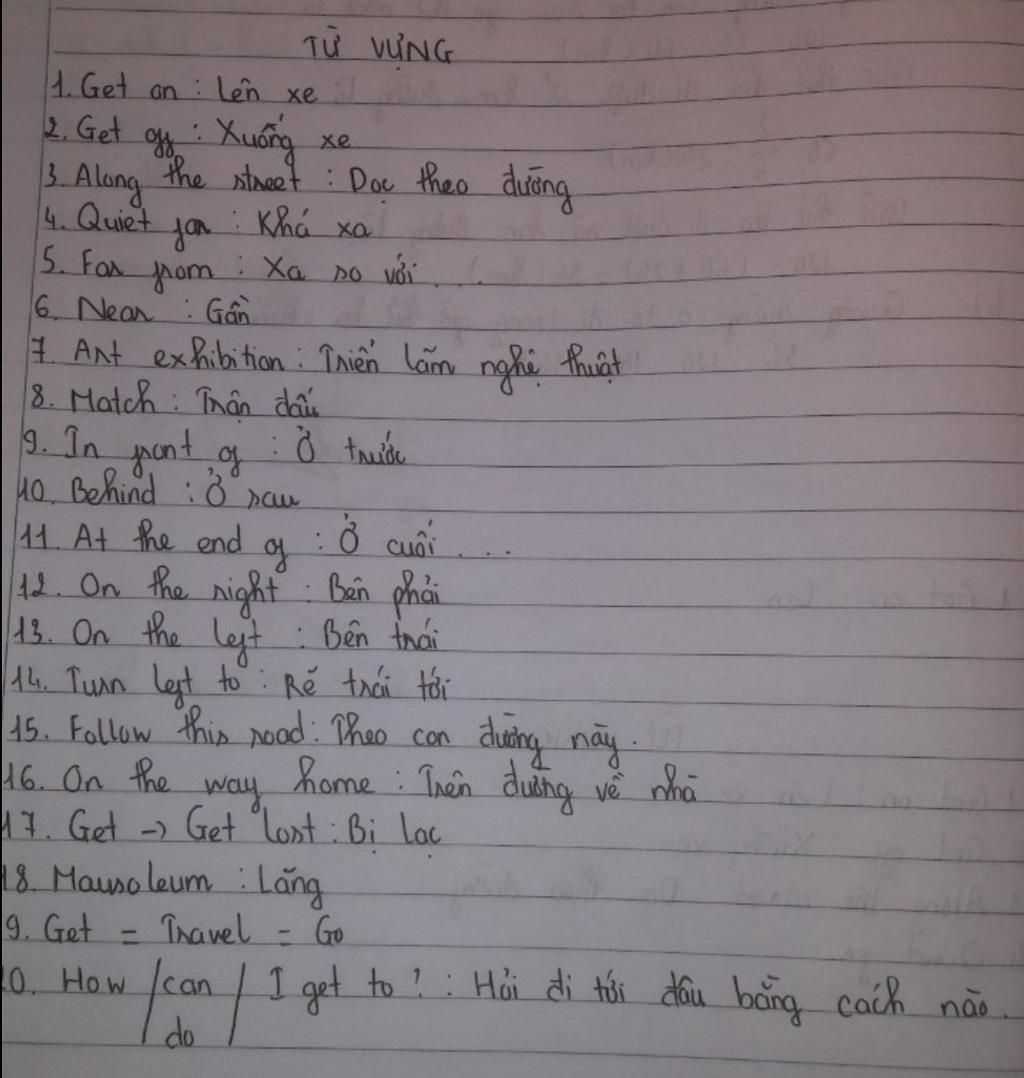 TỪ VỰNG
1. Get on : Lên xe
2. Get off : Xuống xe
3. Along the street : Dọc theo đường
4. Quiet far : Khá xa
5. Far from : Xa so với . . .
6. Near : Gần
7. Art exhibition : Triển lãm nghệ thuật
8. Match : Trận đấu
9. In front of : Ở trước
10. Behind : Ở sau
11. At the end of : Ở cuối . . .
12. On the right : Bên phải
13. On the left : Bên trái
14. Turn left to : Rẽ trái tới
15. Follow this road : Theo con đường này.
16. On the way home : Trên đường về nhà
17. Get → Get lost : Bị lạc
18. Mausoleum : Lăng
9. Get = Travel = Go
0. How / can / I get to ? : Hỏi đi tới đâu bằng cách nào.
do